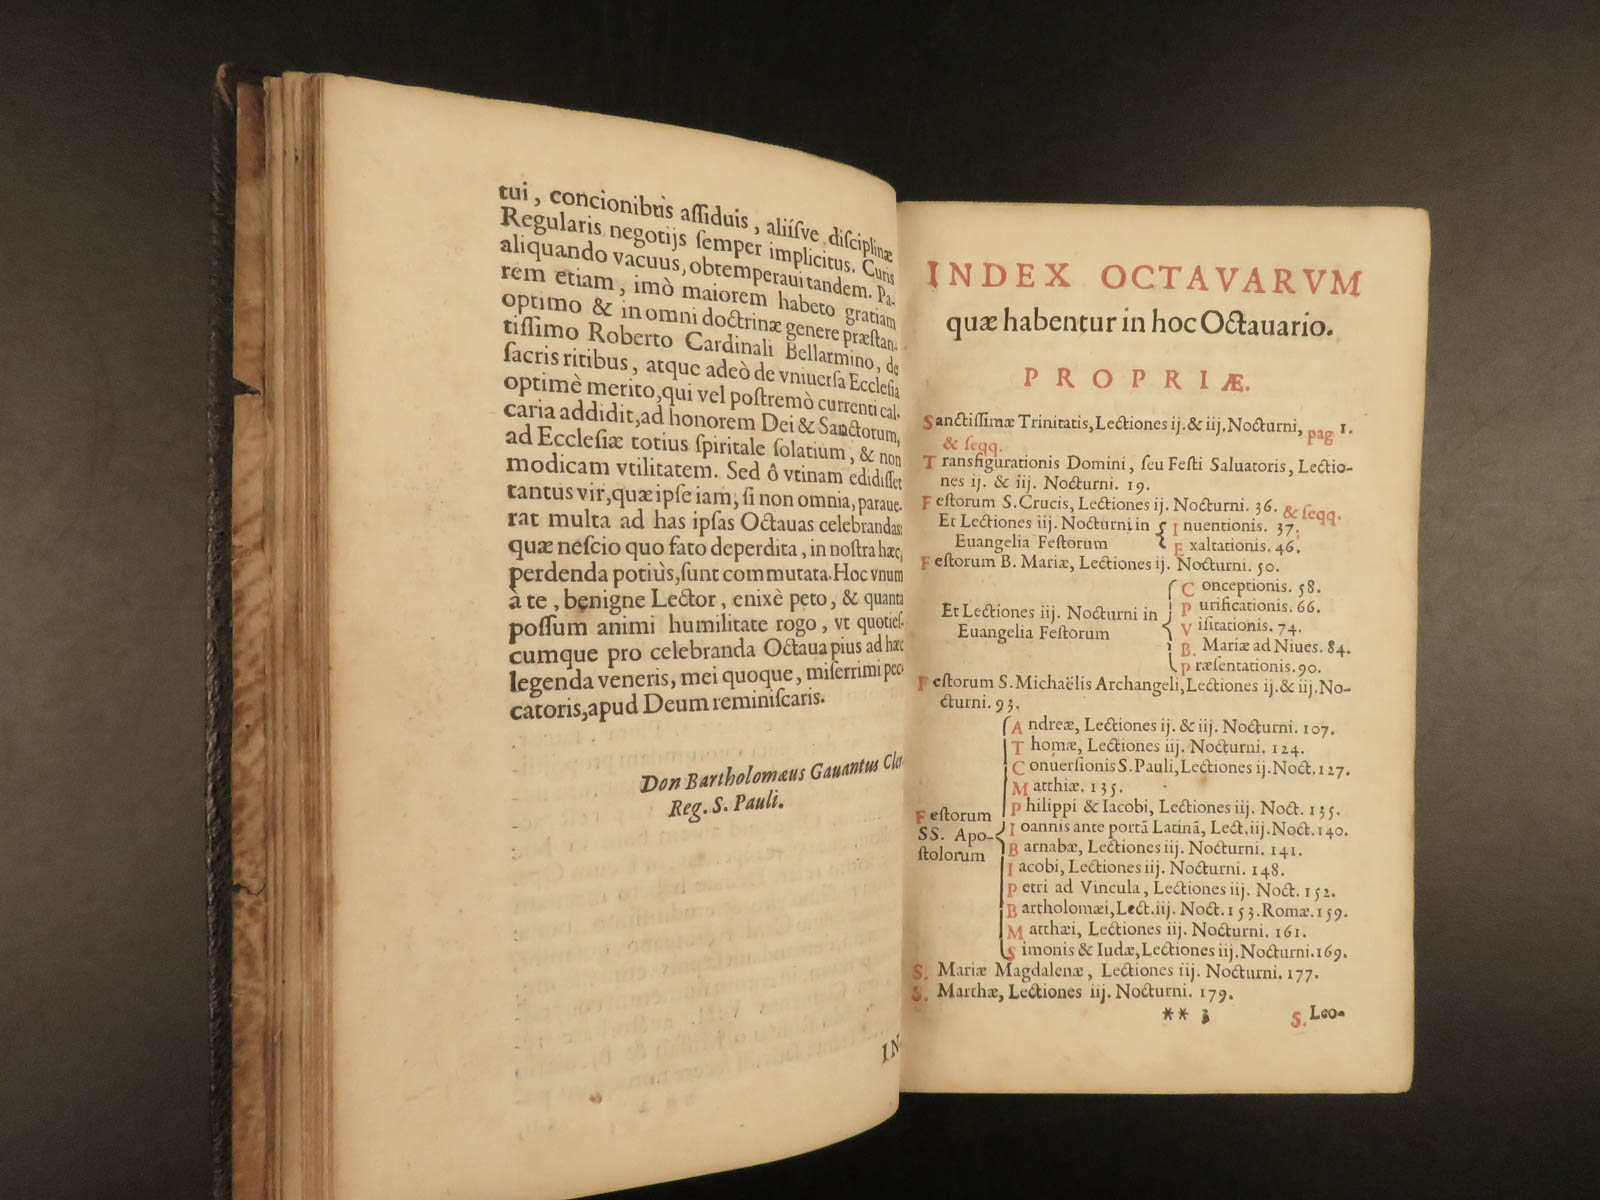 tui, concionibus assiduis, aliisve disciplinæ
Regularis negotijs semper implicitus. Curis
aliquando vacuus, obtemperaui tandem. Pa-
rem etiam, imò maiorem habeto gratiam
optimo & in omni doctrinæ genere præstan-
tissimo Roberto Cardinali Bellarmino, de
sacris ritibus, atque adeò de vniuersa Ecclesia
optimè merito, qui vel postremò currenti cal-
caria addidit, ad honorem Dei & Sanctorum,
ad Ecclesiæ totius spiritale solatium, & non
modicam vtilitatem. Sed ô vtinam edidisset
tantus vir, quæ ipse iam, si non omnia, paraue-
rat multa ad has ipsas Octauas celebrandas:
quæ nescio quo fato deperdita, in nostra hæc,
perdenda potiùs, sunt commutata. Hoc vnum
à te, benigne Lector, enixè peto, & quanta
possum animi humilitate rogo, vt quoties-
cumque pro celebranda Octaua pius ad hæc
legenda veneris, mei quoque, miserrimi pec-
catoris, apud Deum reminiscaris.
Don Bartholomæus Gauantus Cler.
Reg. S. Pauli.
IN
INDEX OCTAVARVM
quæ habentur in hoc Octauario.
PROPRIÆ.
Sanctissimæ Trinitatis, Lectiones ij. & iij. Nocturni, pag 1.
& seqq.
Transfigurationis Domini, seu Festi Saluatoris, Lectio-
nes ij. & iij. Nocturni. 19.
Festorum S. Crucis, Lectiones ij. Nocturni. 36. & seqq.
Et Lectiones iij. Nocturni in
Euangelia Festorum
Inuentionis. 37.
Exaltationis. 46.
Festorum B. Mariæ, Lectiones ij. Nocturni. 50.
Et Lectiones iij. Nocturni in
Euangelia Festorum
Conceptionis. 58.
Purificationis. 66.
Visitationis. 74.
B. Mariæ ad Niues. 84.
Præsentationis. 90.
Festorum S. Michaëlis Archangeli, Lectiones ij. & iij. No-
cturni. 93.
Festorum
SS. Apo-
stolorum
Andreæ, Lectiones ij. & iij. Nocturni. 107.
Thomæ, Lectiones iij. Nocturni. 124.
Conuersionis S. Pauli, Lectiones iij. Noct. 127.
Matthiæ. 135.
Philippi & Iacobi, Lectiones iij. Noct. 135.
Ioannis ante portã Latinã, Lect. iij. Noct. 140.
Barnabæ, Lectiones iij. Nocturni. 141.
Iacobi, Lectiones iij. Nocturni. 148.
Petri ad Vincula, Lectiones iij. Noct. 152.
Bartholomæi, Lect. iij. Noct. 153. Romæ. 159.
Matthæi, Lectiones iij. Nocturni. 161.
Simonis & Iudæ, Lectiones iij. Nocturni. 169.
S. Mariæ Magdalenæ, Lectiones iij. Nocturni. 177.
S. Marthæ, Lectiones iij. Nocturni. 179.
** 3 S. Leo-